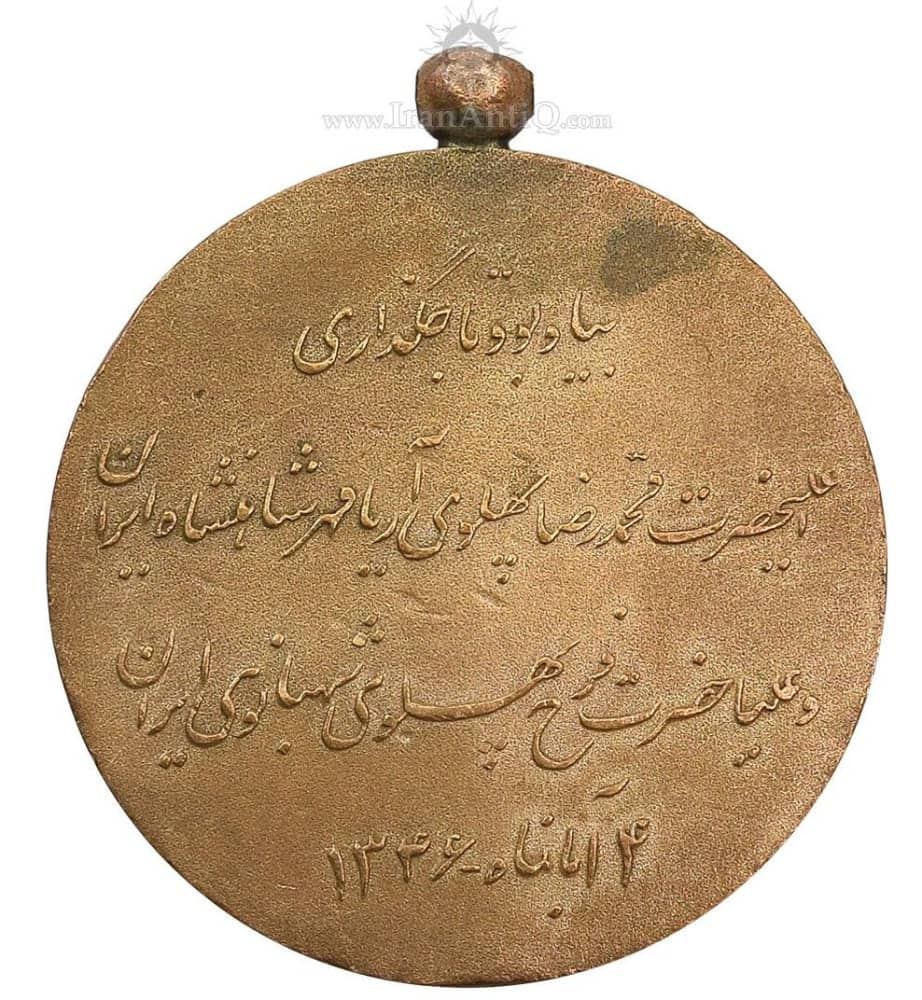 www.IranAntiQ.com
بیادبود تاجگذاری
اعلیحضرت محمدرضا پهلوی آریامهر شاهنشاه ایران
و علیاحضرت فرح پهلوی شهبانوی ایران
۴ آبانماه - ۱۳۴۶